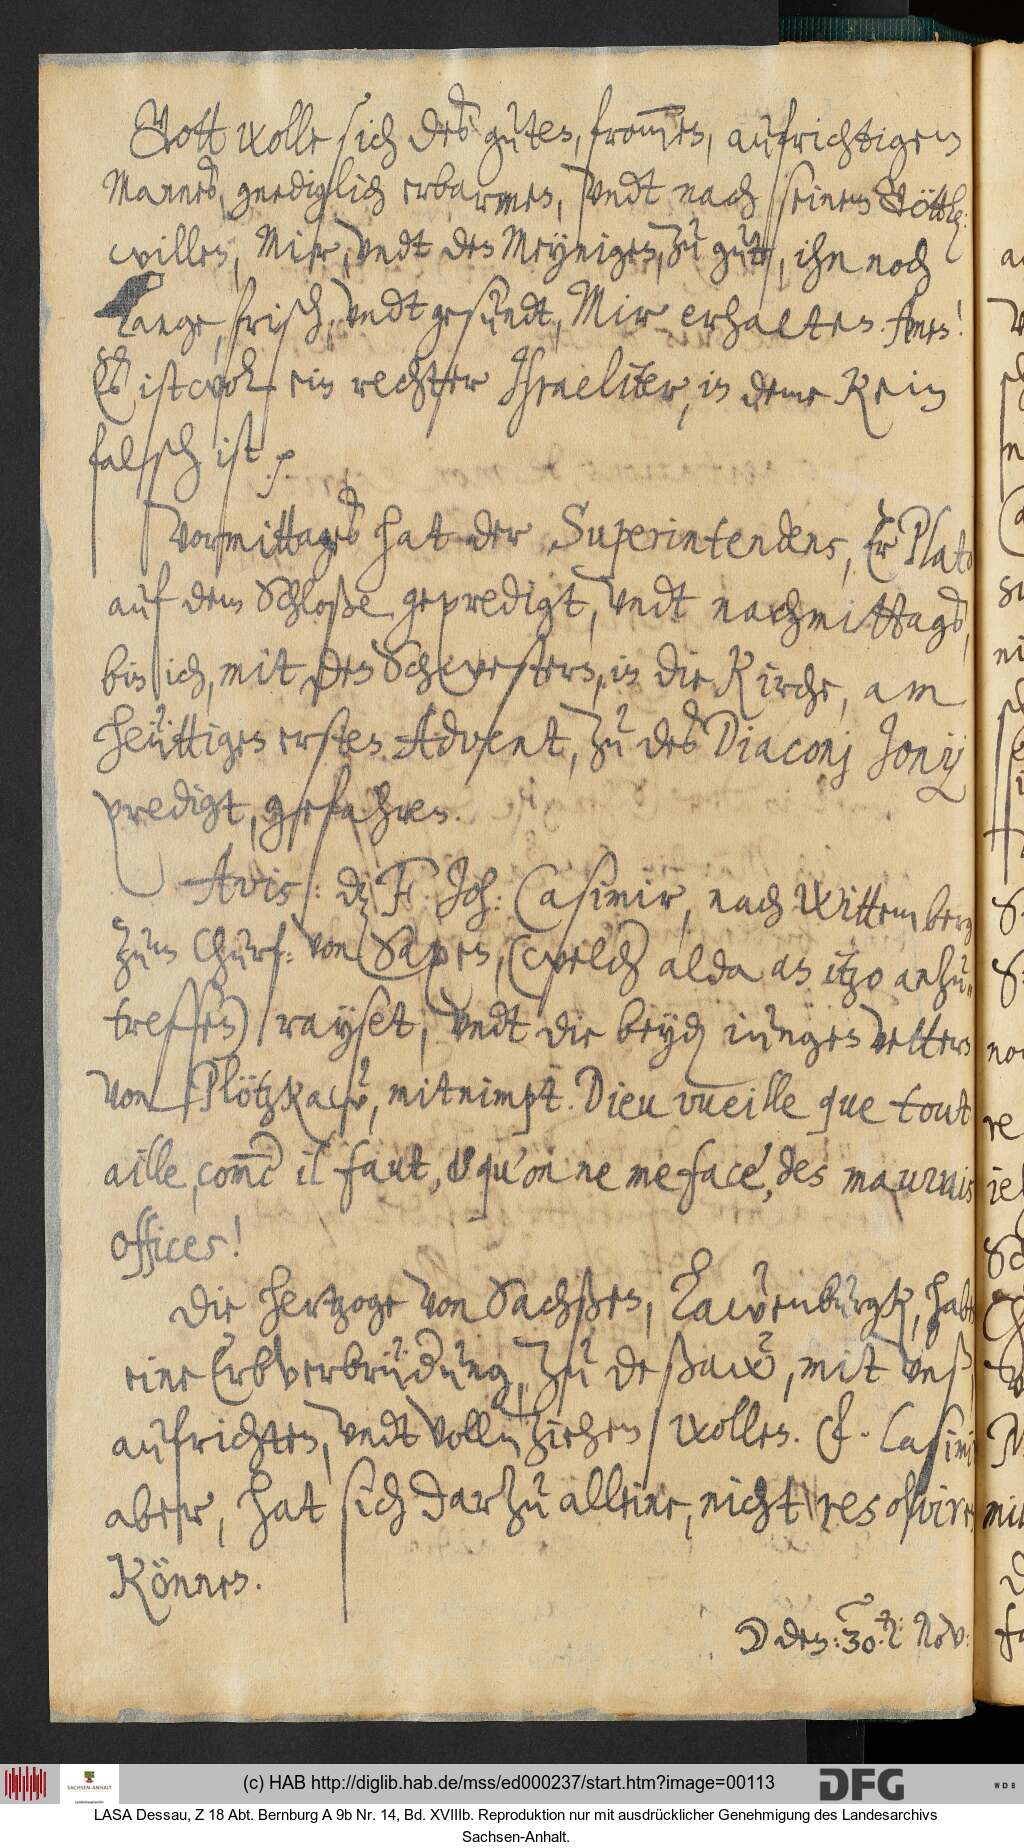 Gott wolle sich des guten, from̄en, aufrichtigen
Mannes, gnediglich erbarmen, undt nach seinem Göttl:
willen, Mir, undt den Meynigen, zu gute, ihn noch
lange, frisch, undt gesundt, Mir erhalten. Amen!
Es ist wol ein rechter Jsraeliter, in deme kein
falsch ist. 
Vormittages hat der Superintendens, Er Plato
auf dem Schloße geprediget, undt nachmittags,
bin ich, mit den Schwestern, in die Kirche, am
heüttigen ersten Advent, zu des Diaconj Jonij
predigt, gefahren.
Avis: dz F. Joh: Casimir, nach Wittemberg
zum Churf: von Saxen, (welch alda an itzo anzu„
treffen) rayset, undt die beyden iungen vettern
von Plötzkaw, mitnimpt. Dieu vueille que tout
aille, com̄e il faut, & qu'on ne me face, des mauvais
offices!
Die Hertzoge von Sachßen, Lawenburgk, haben
eine Erbverbrüderung, zu Deßaw, mit unß
aufrichten, undt vollnziehen wollen. F. Casimir
aber, hat sich darzu alleine, nicht resolviren
können.
☽ den: 30. Nov:
(c) HAB http://diglib.hab.de/mss/ed000237/start.htm?image=00113
DFG
SACHSEN-ANHALT
WDB
LASA Dessau, Z 18 Abt. Bernburg A 9b Nr. 14, Bd. XVIIIb. Reproduktion nur mit ausdrücklicher Genehmigung des Landesarchivs
Sachsen-Anhalt.